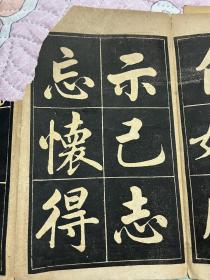 示己志
忘懷得